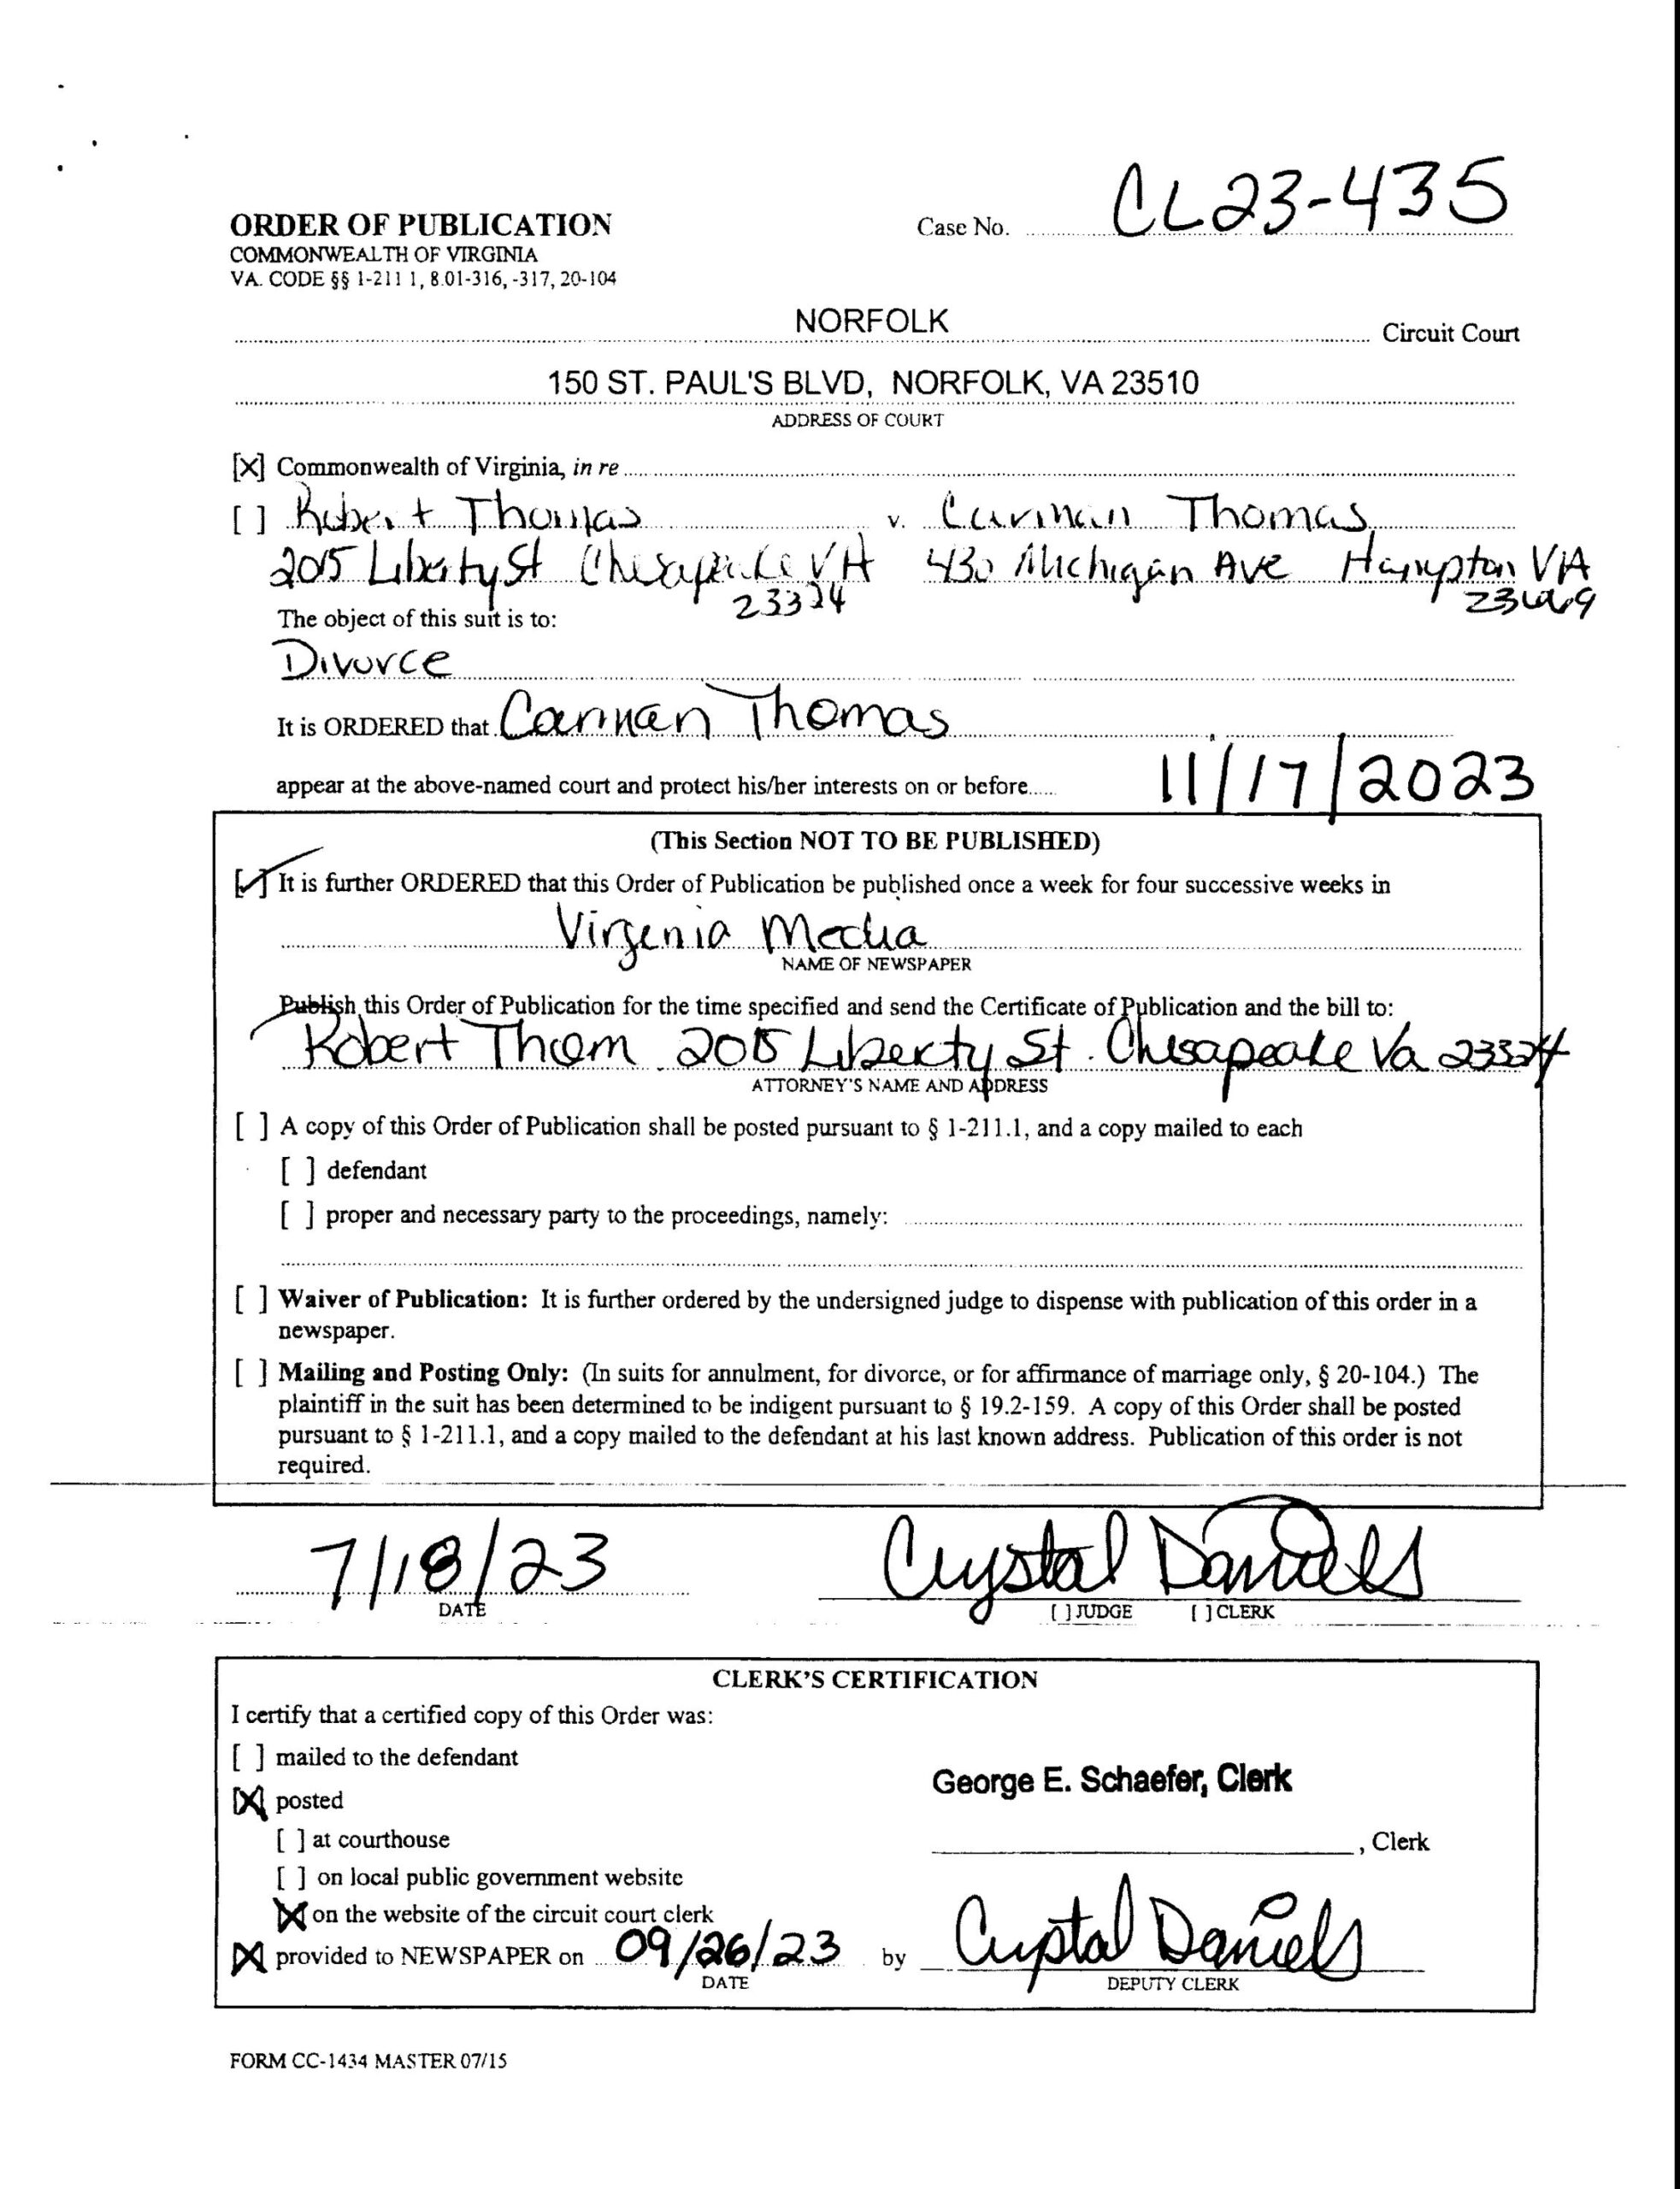 CL23-435
ORDER OF PUBLICATION Case No.
COMMONWEALTH OF VIRGINIA
VA. CODE §§ 1-211 1, 8.01-316, -317, 20-104
NORFOLK Circuit Court
150 ST. PAUL'S BLVD, NORFOLK, VA 23510
ADDRESS OF COURT
[X] Commonwealth of Virginia, in re
[ ] Robert Thomas v. Carman Thomas
2015 Liberty St Chesapeake VA 430 Michigan Ave Hampton VA
23324 23669
The object of this suit is to:
Divorce
It is ORDERED that Carman Thomas
appear at the above-named court and protect his/her interests on or before 11/17/2023
(This Section NOT TO BE PUBLISHED)
[✓] It is further ORDERED that this Order of Publication be published once a week for four successive weeks in
Virgenia Media
NAME OF NEWSPAPER
Publish this Order of Publication for the time specified and send the Certificate of Publication and the bill to:
Robert Thom 2015 Liberty St. Chesapeake Va 23324
ATTORNEY'S NAME AND ADDRESS
[ ] A copy of this Order of Publication shall be posted pursuant to § 1-211.1, and a copy mailed to each
[ ] defendant
[ ] proper and necessary party to the proceedings, namely:
[ ] Waiver of Publication: It is further ordered by the undersigned judge to dispense with publication of this order in a
newspaper.
[ ] Mailing and Posting Only: (In suits for annulment, for divorce, or for affirmance of marriage only, § 20-104.) The
plaintiff in the suit has been determined to be indigent pursuant to § 19.2-159. A copy of this Order shall be posted
pursuant to § 1-211.1, and a copy mailed to the defendant at his last known address. Publication of this order is not
required.
7/18/23 Crystal Daniels
DATE [ ] JUDGE [ ] CLERK
CLERK'S CERTIFICATION
I certify that a certified copy of this Order was:
[ ] mailed to the defendant
George E. Schaefer, Clerk
[X] posted
[ ] at courthouse
, Clerk
[ ] on local public government website
[X] on the website of the circuit court clerk
[X] provided to NEWSPAPER on 09/26/23 by Crystal Daniels
DATE DEPUTY CLERK
FORM CC-1434 MASTER 07/15